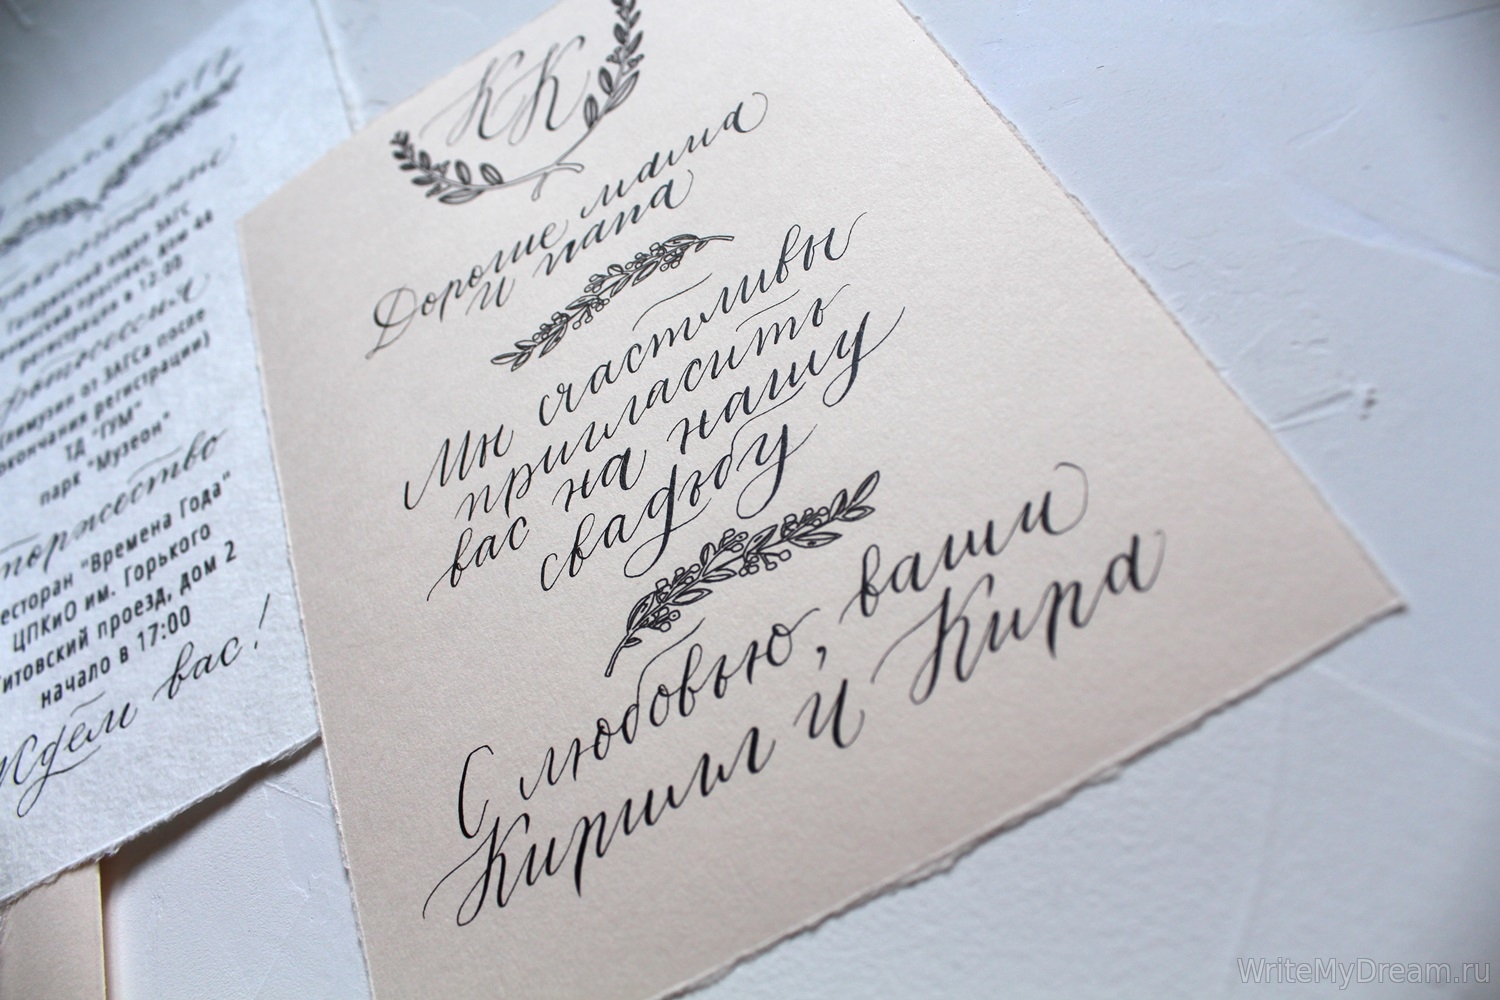 2017
Гагаринский отдел ЗАГС
проспект, дом 44
регистрация в 12:00
фотосессия
(лимузин от ЗАГСа после
окончания регистрации)
ТД "ГУМ"
парк "Музеон"
торжество
ресторан "Времена Года"
ЦПКиО им. Горького
проезд, дом 2
начало в 17:00
Ждем вас!
КК
Дорогие мама
и папа
Мы счастливы
пригласить
вас на нашу
свадьбу
С любовью, ваши
Кирилл и Кира
WriteMyDream.ru